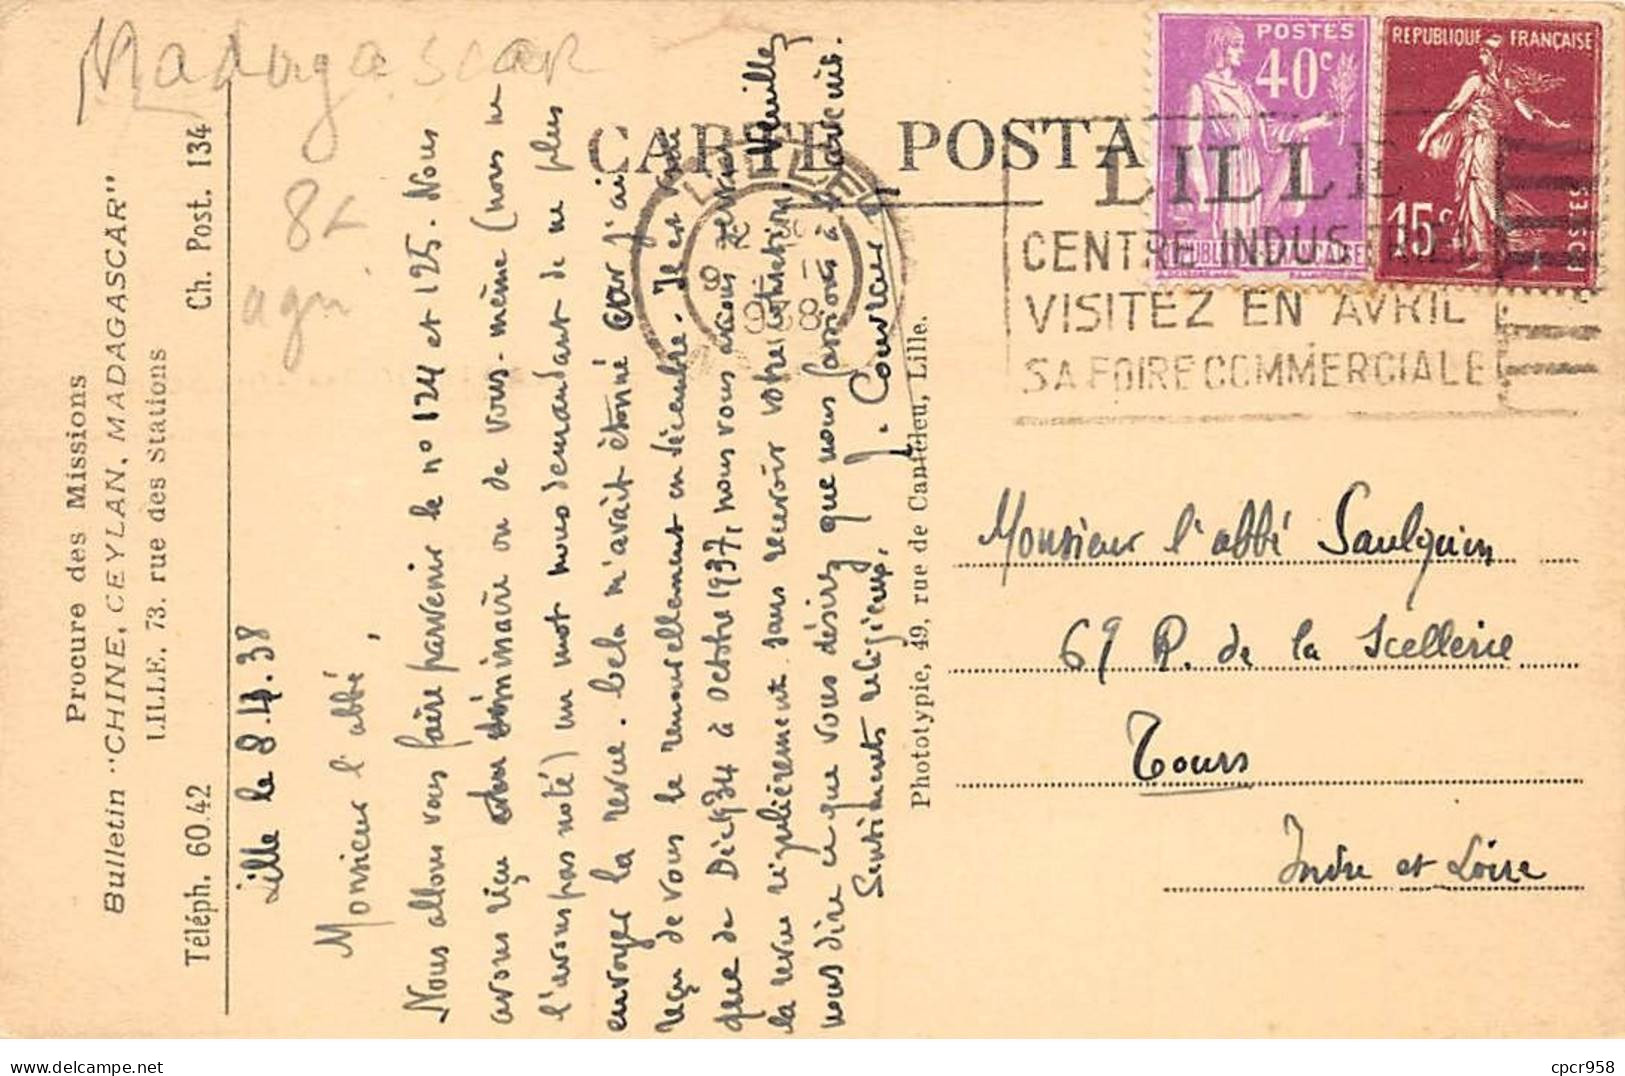 Madagascar
8€
agri
Procure des Missions
Bulletin "CHINE, CEYLAN, MADAGASCAR"
LILLE, 73, rue des Stations
Téléph. 60.42
Ch. Post. 134
CARTE POSTA
Lille le 8.4.38
Monsieur l'abbé,
Nous allons vous faire parvenir le n° 124 et 125. Nous
avons reçu du séminaire ou de vous-même (nous ne
l'avons pas noté) un mot nous demandant de ne plus
envoyer la revue. Cela m'avait étonné car j'ai
reçu de vous le renouvellement en décembre. Il est vrai
que de Déc 1934 à octobre 1937, nous vous avons servi
la revue régulièrement sans recevoir votre cotisation. Veuillez
nous dire ce que vous désirez que nous fassions à l'avenir.
Sentiments religieux.
J. Couvreur
Phototypie, 49, rue de Canteleu, Lille.
POSTES
40c
REPUBLIQUE FRANÇAISE
REPUBLIQUE FRANÇAISE
15c
POSTES
LILLE
1938
LILLE
CENTRE INDUSTRIEL
VISITEZ EN AVRIL
SA FOIRE COMMERCIALE
Monsieur l'abbé Saulquin
69 R. de la Scellerie
Tours
Indre et Loire
delcampe.net
cpcr958